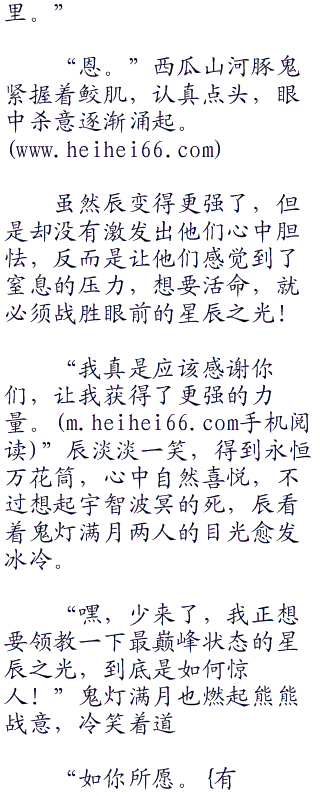 里。”
“恩。”西瓜山河豚鬼
紧握着鲛肌，认真点头，眼
中杀意逐渐涌起。
(www.heihei66.com)
虽然辰变得更强了，但
是却没有激发出他们心中胆
怯，反而是让他们感觉到了
窒息的压力，想要活命，就
必须战胜眼前的星辰之光！
“我真是应该感谢你
们，让我获得了更强的力
量。(m.heihei66.com手机阅
读)”辰淡淡一笑，得到永恒
万花筒，心中自然喜悦，不
过想起宇智波冥的死，辰看
着鬼灯满月两人的目光愈发
冰冷。
“嘿，少来了，我正想
要领教一下最巅峰状态的星
辰之光，到底是如何惊
人！”鬼灯满月也燃起熊熊
战意，冷笑着道
“如你所愿。{有